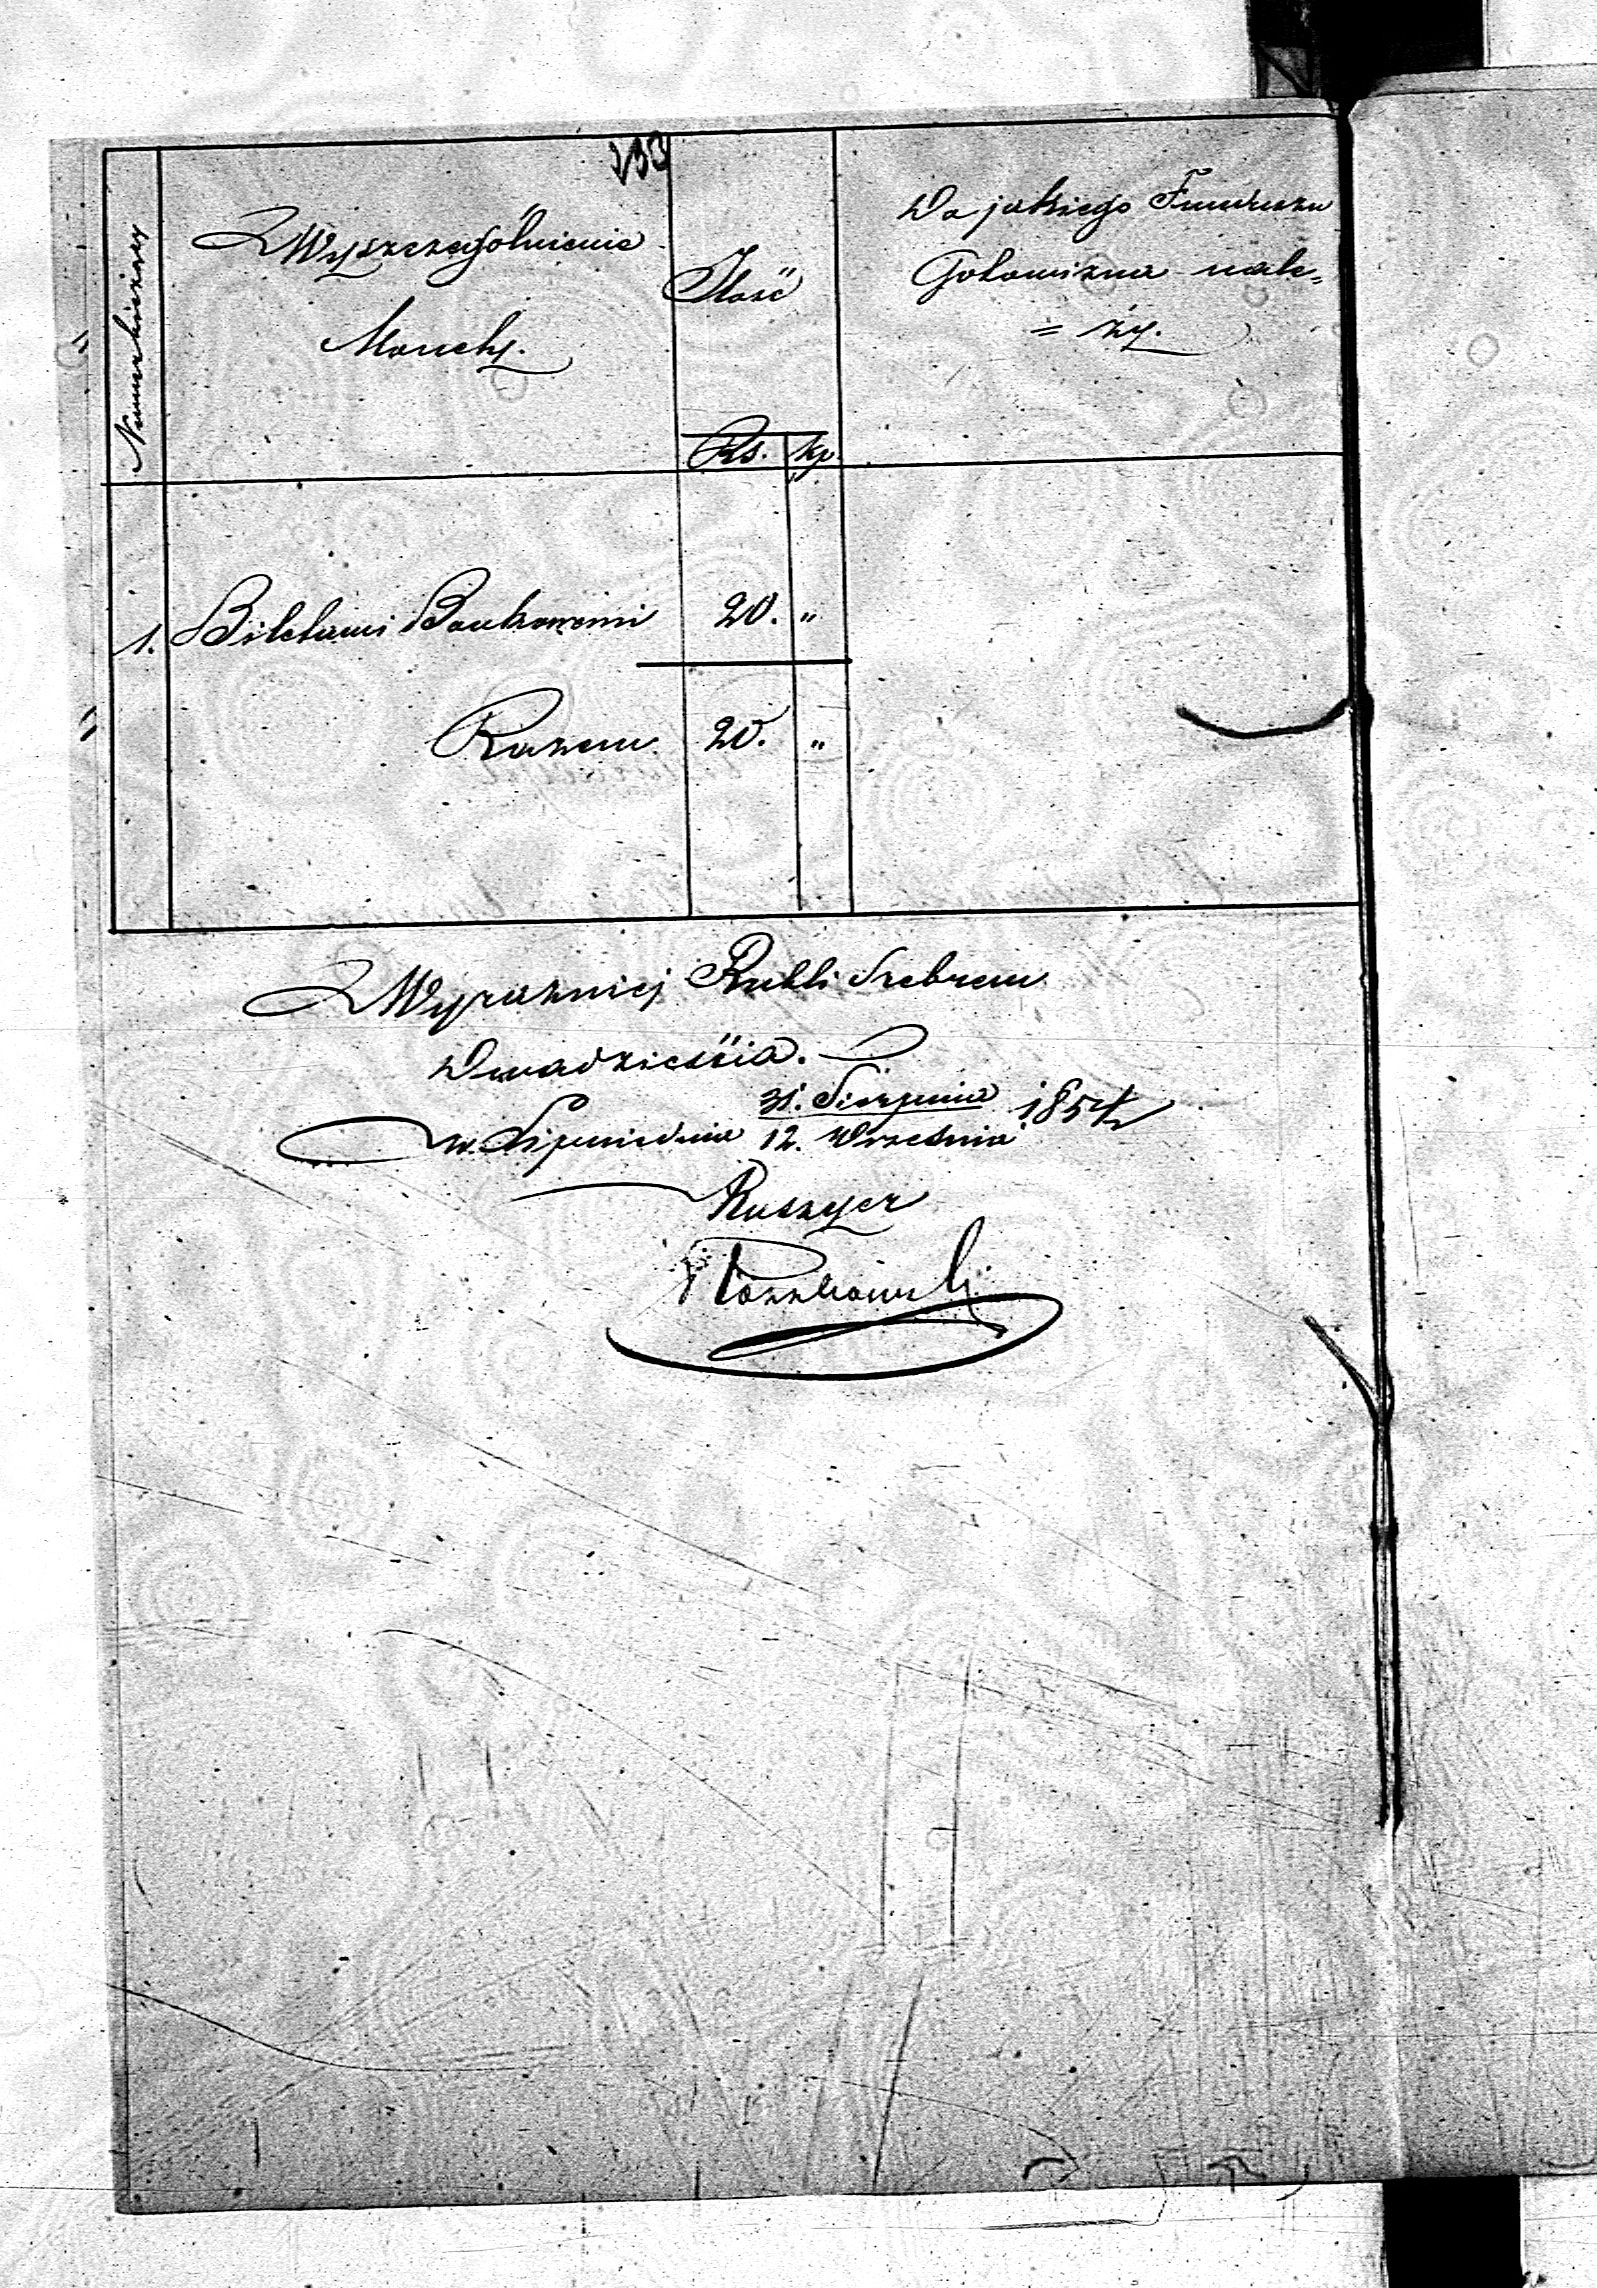 133
Numer bieżący
Wyszczególnienie
Monety.
Ilość
Rs. kp.
Do jakiego Funduszu
Gotowizna nale=
=ży.
1. Biletami Bankowemi 20. "
Razem 20. "
Wyraźniej Rubli Srebrem
Dwadzieścia.
31. Sierpnia
12. Września 1854
Kassyer